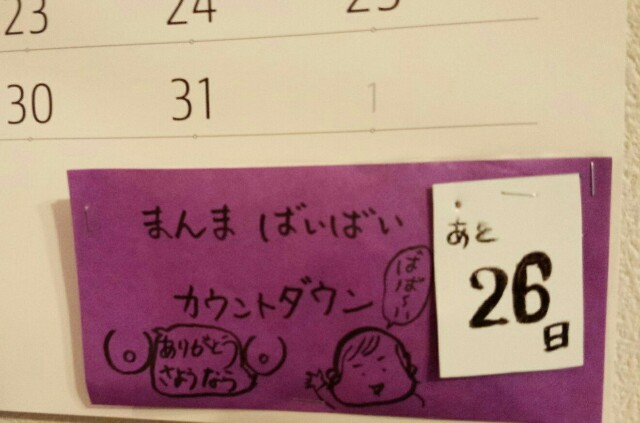 23 24 25
30 31 1
まんま ばいばい
カウントダウン
ばばーい
ありがとう
さようなら
あと
26
日